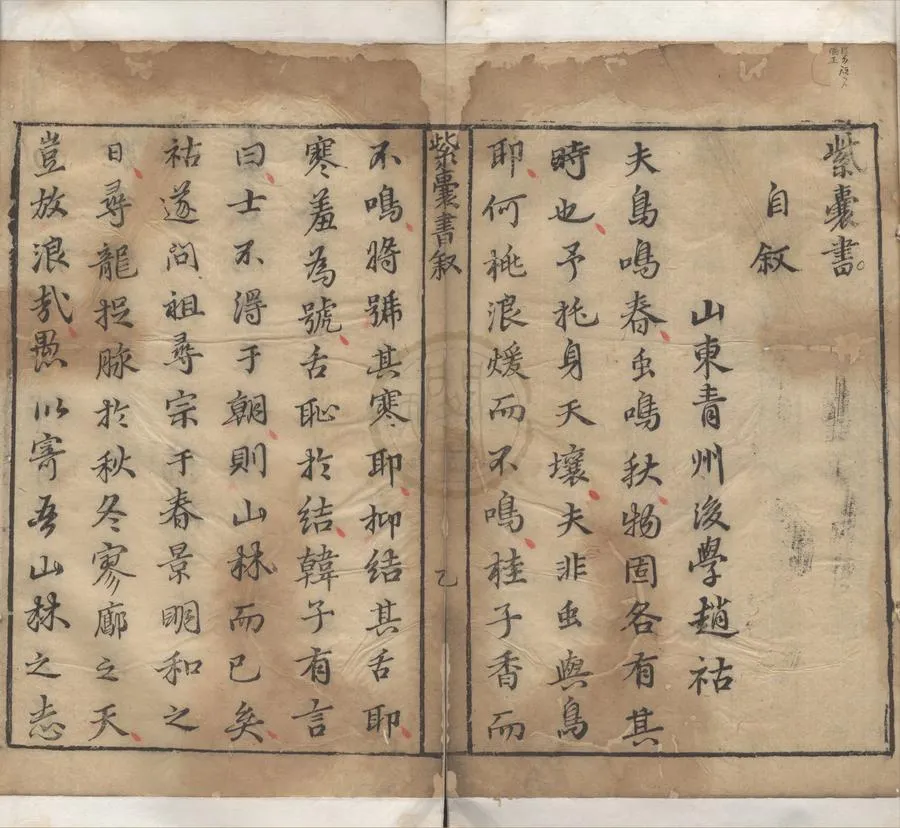 紫囊書
自叙
山東青州後學趙祜
夫鳥鳴春虫鳴秋物固各有其
時也予托身天壤夫非虫與鳥
耶何桃浪煖而不鳴桂子香而
紫囊書叙
乙
不鳴將號其寒耶抑結其舌耶
寒羞為號舌恥於結韓子有言
曰士不淂于朝則山林而已矣
祜遂問祖尋宗于春景明和之
日尋龍捉脉於秋冬寥廓之天
豈放浪哉愚以寄吾山林之志